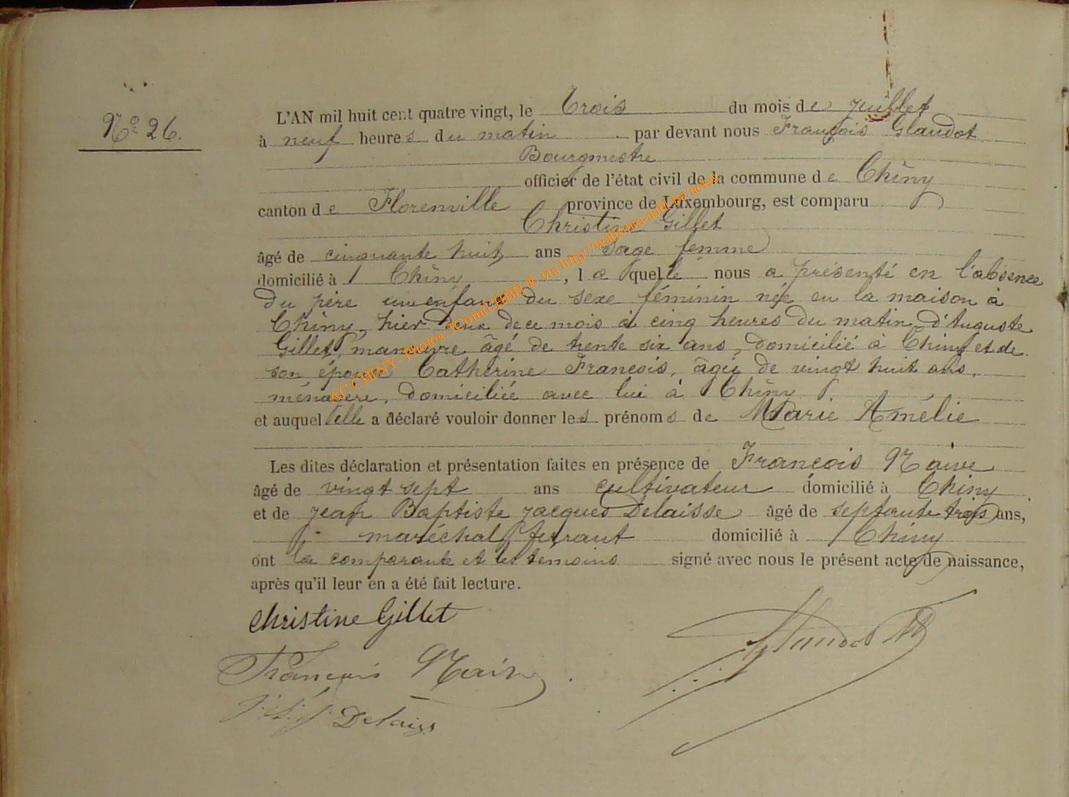 N° 26.
L'AN mil huit cent quatre vingt, le Trois du mois de juillet
à neuf heures du matin par devant nous François Glaudot
Bourgmestre
officier de l'état civil de la commune de Chiny
canton de Florenville province de Luxembourg, est comparu
Christine Gillet
âgé de cinquante huit ans Sage femme
domicilié à Chiny, laquelle nous a présenté en l'absence
du père un enfant du sexe féminin née en la maison à
Chiny, hier deux de ce mois à cinq heures du matin, d'Auguste
Gillet, manœuvre âgé de trente six ans, domicilié à Chiny et de
son épouse Catherine François, âgée de vingt huit ans,
ménagère, domiciliée avec lui à Chiny
et auquel elle a déclaré vouloir donner les prénoms de Marie Amélie
Les dites déclaration et présentation faites en présence de François Naive
âgé de vingt sept ans cultivateur domicilié à Chiny
et de Jean Baptiste Jacques Delaisse âgé de septante trois ans,
maréchal ferrant domicilié à Chiny
ont la comparante et les témoins signé avec nous le présent acte de naissance,
après qu'il leur en a été fait lecture.
Christine Gillet
François